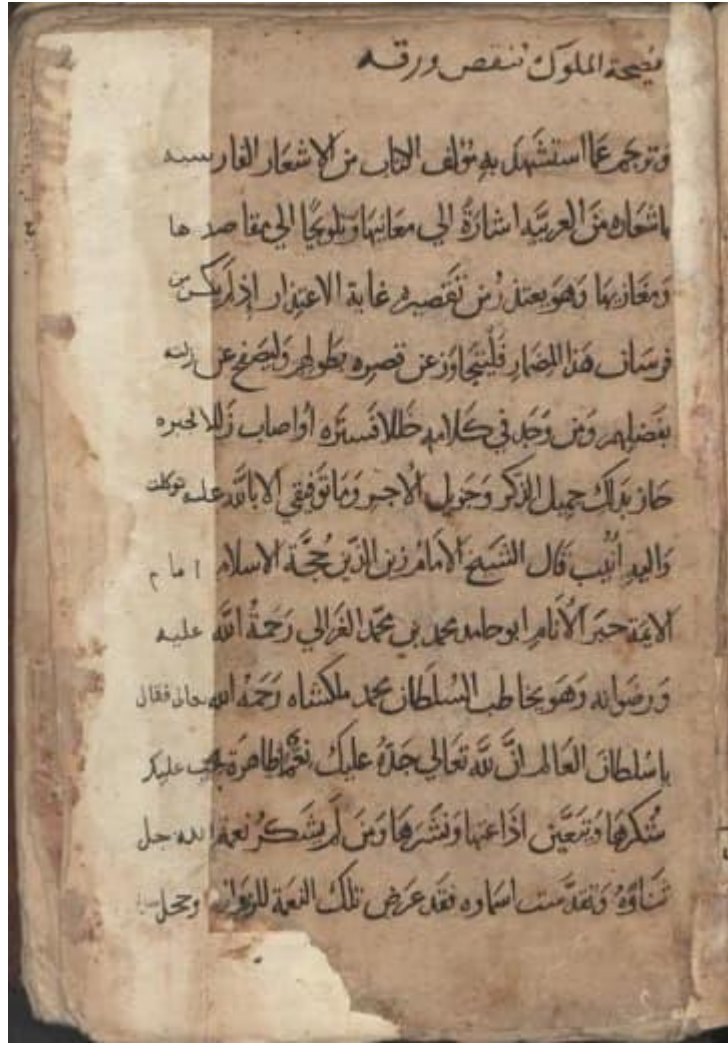 نصيحة الملوك تنقص ورقه
وترجم عما استشهد به مؤلف الكتاب من الاشعار الفارسيه
باشعاره من العربيه اشارةً الي معانيها وتلويحًا الي مقاصدها
ومغازيها وهو يعتذر من تقصيره غاية الاعتذار اذ لم يكن من
فرسان هذا المضمار فليتجاوز عن قصره بطولهم وليصفح عن زلته
بفضلهم ومن وجد في كلامه خللا فستره او اصاب زللا فجبره
حاز بذلك جميل الذكر وجزيل الاجر وما توفيقي الا بالله عليه توكلت
واليه انيب قال الشيخ الامام زين الدين حجة الاسلام امام
الايمة حبر الانام ابو حامد محمد بن محمد الغزالي رحمة الله عليه
ورضوانه وهو يخاطب السلطان محمد ملكشاه رحمه الله فقال
ياسلطان العالم ان لله تعالي جده عليك نعمًا ظاهرة يجب عليك
شكرها وتتعين اذاعتها ونشرها ومن لم يشكر نعمة الله جل
ثناوه وتقدست اسماوه فقد عرض تلك النعمة للزوال وخجل